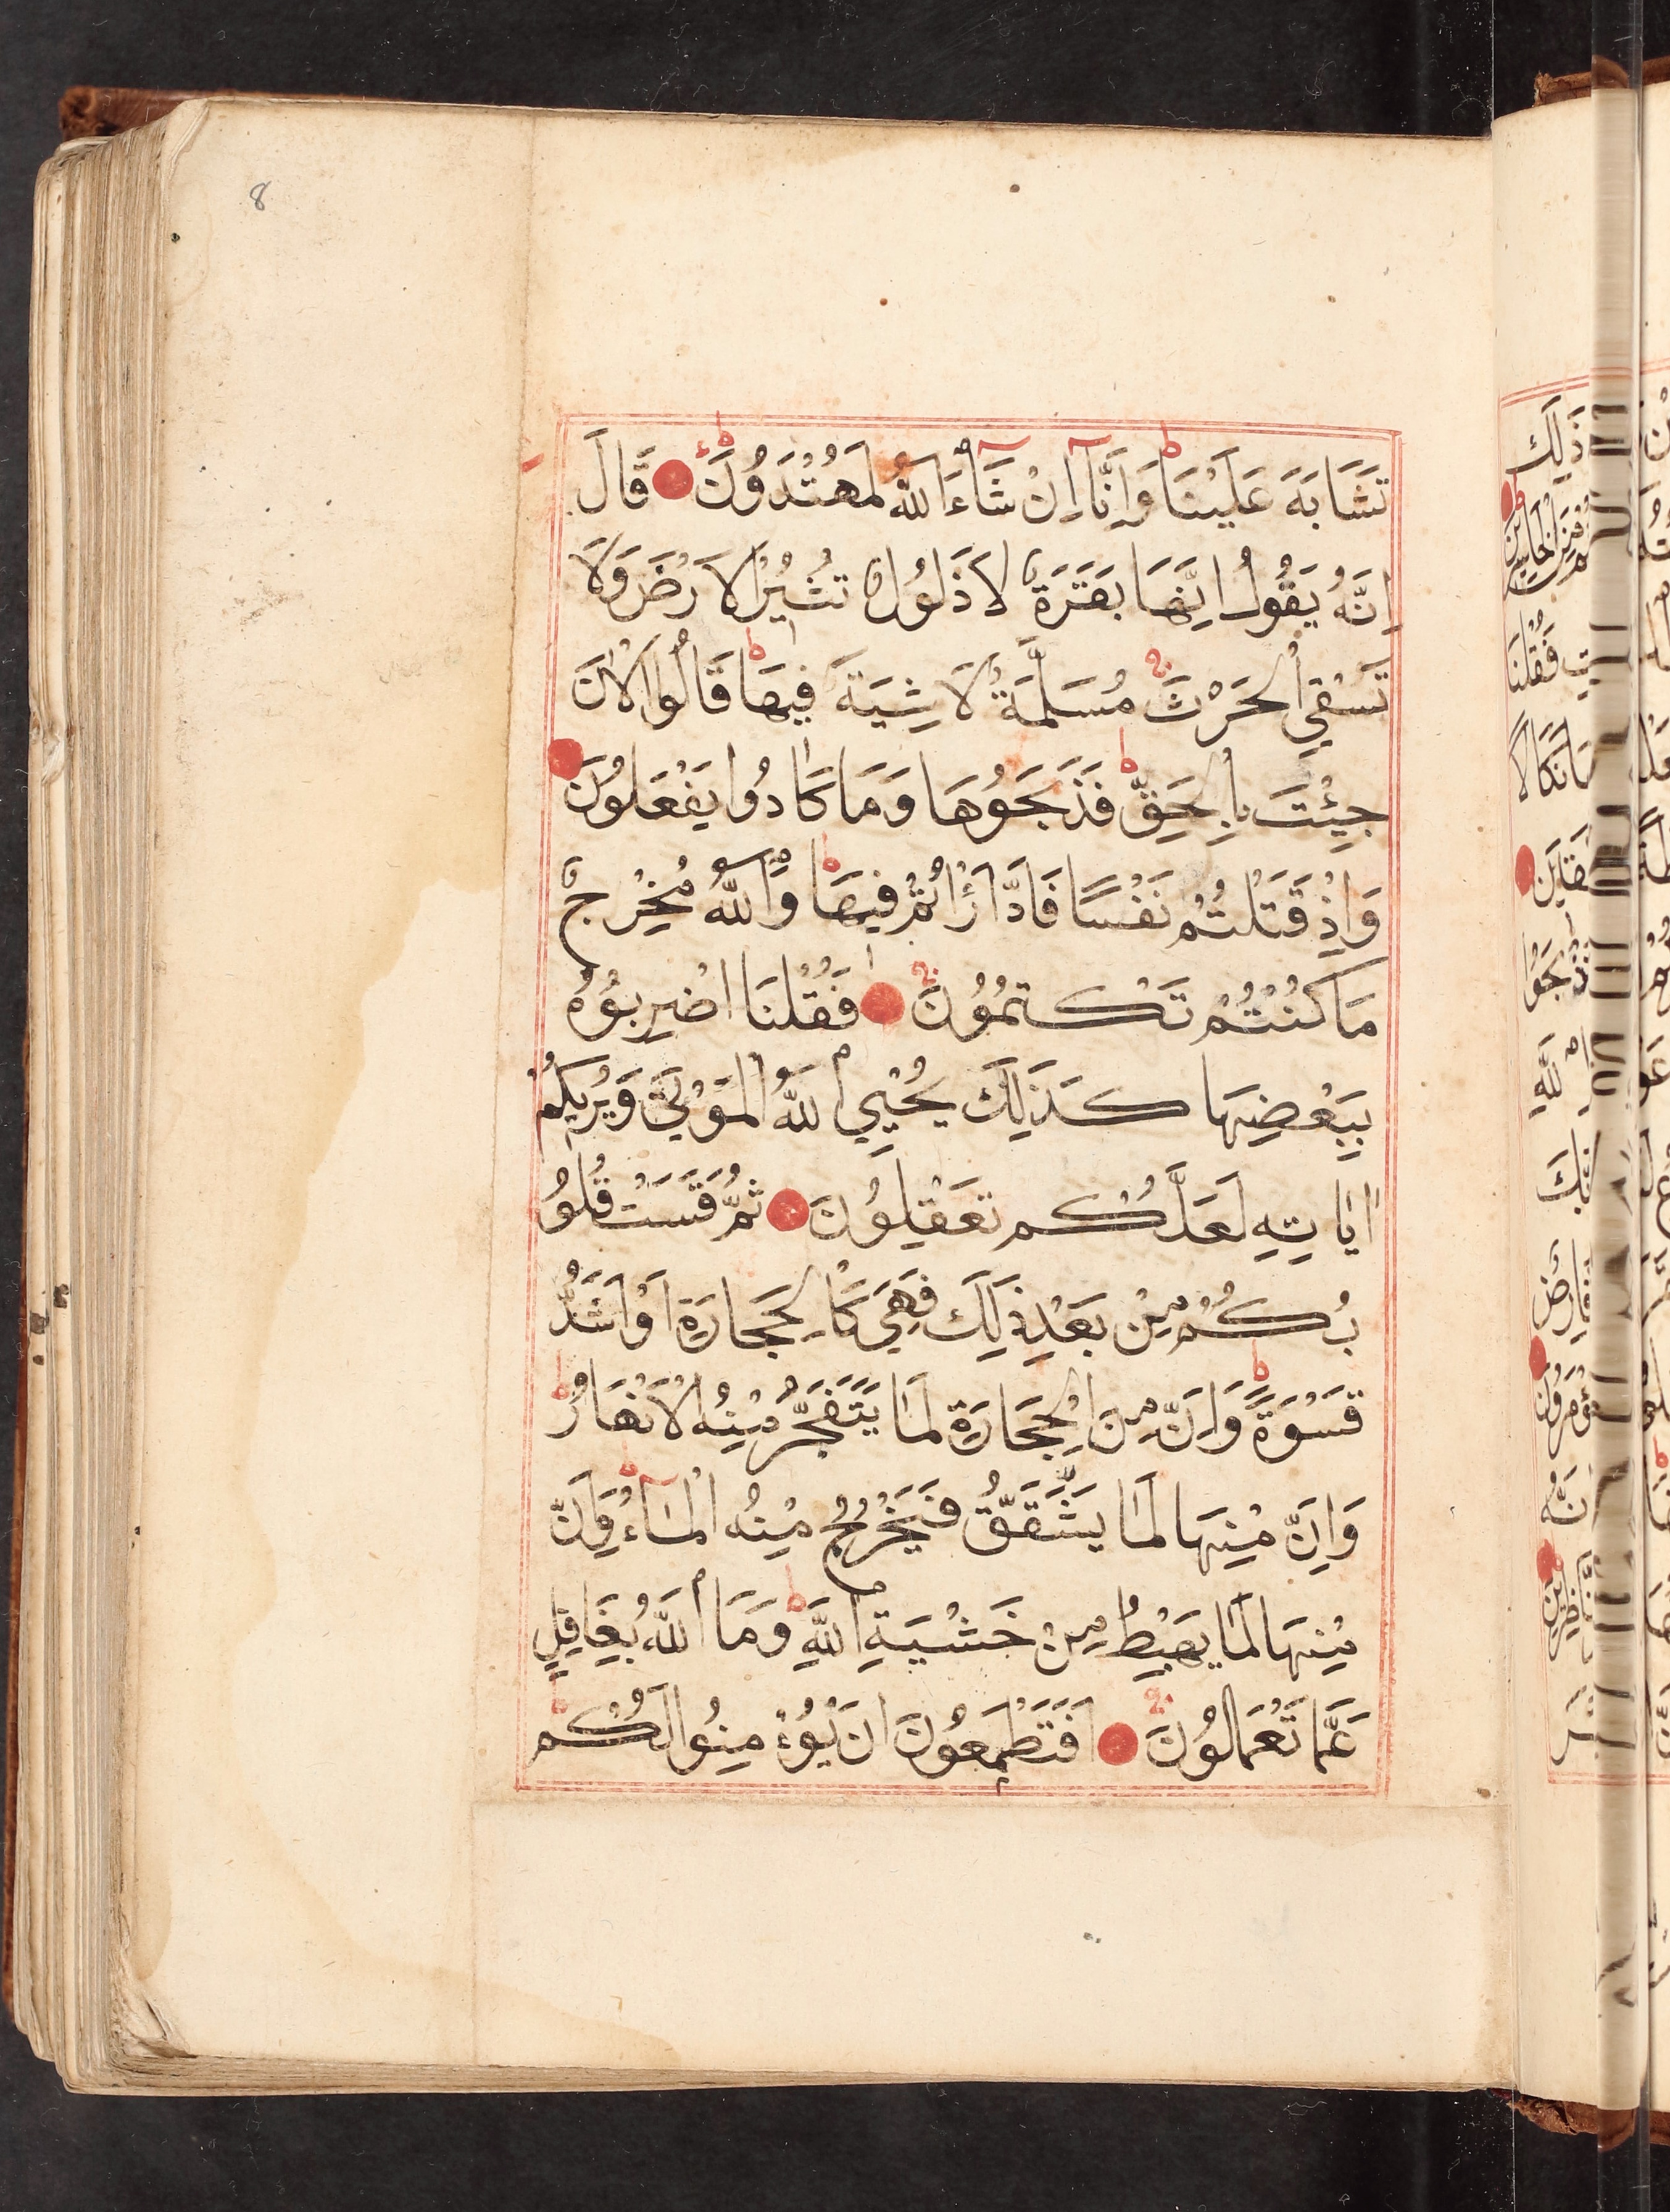 8
تَشَابَهَ عَلَيْنَا وَاِنَّآ اِنْ شَآءَ اللّٰهُ لَمُهْتَدُوْنَ قَالَ
اِنَّهُ يَقُوْلُ اِنَّهَا بَقَرَةٌ لَا ذَلُوْلٌ تُثِيْرُ الْاَرْضَ وَلَا
تَسْقِي الْحَرْثَ مُسَلَّمَةٌ لَا شِيَةَ فِيْهَا قَالُوا الْاٰنَ
جِئْتَ بِالْحَقِّ فَذَبَحُوْهَا وَمَا كَادُوْا يَفْعَلُوْنَ
وَاِذْ قَتَلْتُمْ نَفْسًا فَادَّارَأْتُمْ فِيْهَا وَاللّٰهُ مُخْرِجٌ
مَا كُنْتُمْ تَكْتُمُوْنَ فَقُلْنَا اضْرِبُوْهُ
بِبَعْضِهَا كَذٰلِكَ يُحْيِي اللّٰهُ الْمَوْتٰى وَيُرِيْكُمْ
اٰيَاتِهٖ لَعَلَّكُمْ تَعْقِلُوْنَ ثُمَّ قَسَتْ قُلُوْ
بُكُمْ مِنْ بَعْدِ ذٰلِكَ فَهِيَ كَالْحِجَارَةِ اَوْ اَشَدُّ
قَسْوَةً وَاِنَّ مِنَ الْحِجَارَةِ لَمَا يَتَفَجَّرُ مِنْهُ الْاَنْهَارُ
وَاِنَّ مِنْهَا لَمَا يَشَّقَّقُ فَيَخْرُجُ مِنْهُ الْمَآءُ وَاِنَّ
مِنْهَا لَمَا يَهْبِطُ مِنْ خَشْيَةِ اللّٰهِ وَمَا اللّٰهُ بِغَافِلٍ
عَمَّا تَعْمَلُوْنَ اَفَتَطْمَعُوْنَ اَنْ يُؤْمِنُوْا لَكُمْ